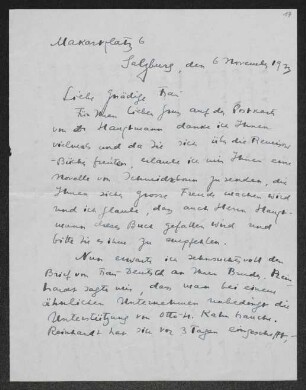 17
Makartplatz 6
Salzburg, den 6 November 19
Liebe gnädige Frau
Für Ihren lieben Gruss auf der Postkarte
von Hauptmann danke ich Ihnen
vielmals und da Sie sich über die
Bücher freuten, erlaube ich mir Ihnen eine
Novelle von Schmidtbonn zu senden, die
Ihnen sicher grosse Freude machen wird
und ich glaube, dass auch Herrn Haupt-
mann dieses Buch gefallen wird und
bitte Sie es ihm zu empfehlen.
Nun erwarte ich sehnsuchtsvoll den
Brief von Frau Deutsch an Ihren Bruder. Rein-
hardt sagte mir, dass man bei einem
ähnlichen Unternehmen unbedingt die
Unterstützung von Otto H. Kahn
Reinhardt hat sich vor 3 Tagen eingeschifft,